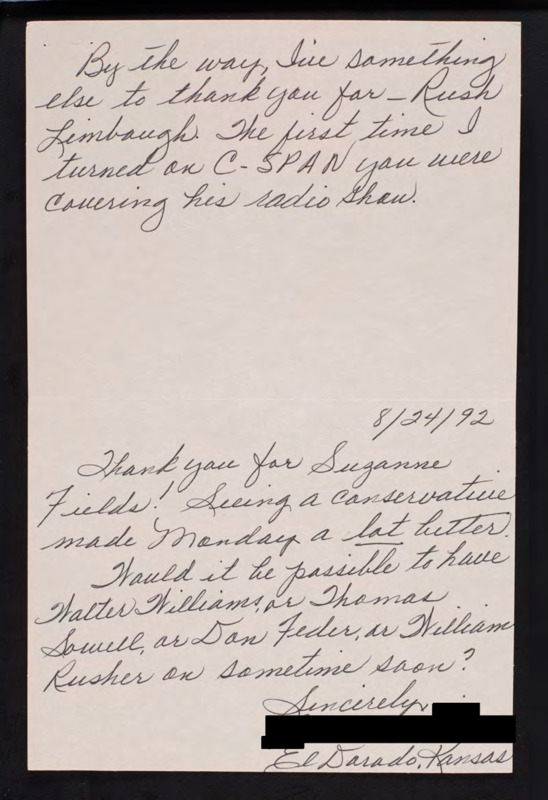 By the way, I've something
else to thank you for – Rush
Limbaugh. The first time I
turned on C-SPAN you were
covering his radio show.
8/24/92
Thank you for Suzanne
Fields! Seeing a conservative
made Monday a lot better.
Would it be possible to have
Walter Williams, or Thomas
Sowell, or Don Feder, or William
Rusher on sometime soon?
Sincerely,
El Dorado, Kansas